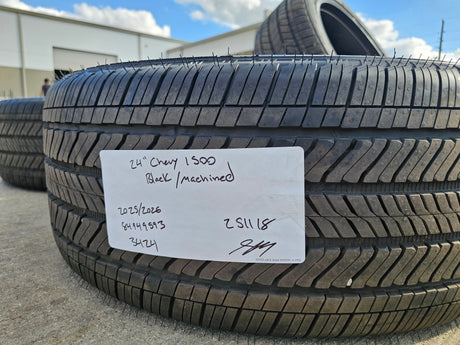 24" Chevy 1500
Black/Machined
2025/2026
84949593
3424
251118